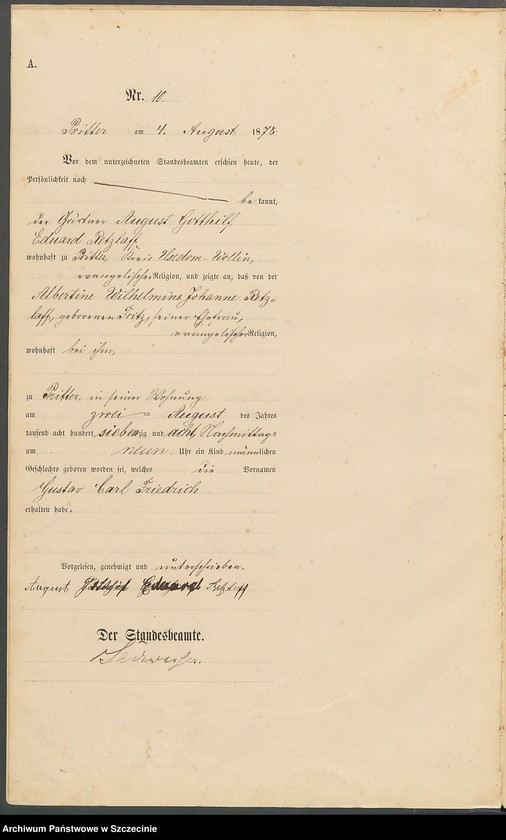 A.
Nr. 10.
Pritter am 4. August 1878
Vor dem unterzeichneten Standesbeamten erschien heute, der
Persönlichkeit nach
be kannt,
der Gärtner August Gotthilf
Eduard Retzlaff
wohnhaft zu Pritter, Kreis Usedom-Wollin,
evangelischer Religion, und zeigte an, daß von der
Albertine Wilhelmine Johanne Retz-
laff, geborenen Fritz, seiner Ehefrau,
evangelischer Religion,
wohnhaft bei ihm,
zu Pritter in seiner Wohnung
am zwei ten August des Jahres
tausend acht hundert siebenzig und acht, Nachmittags
um neun Uhr ein Kind männlichen
Geschlechts geboren worden sei, welches die Vornamen
Gustav Carl Friedrich
erhalten habe.
Vorgelesen, genehmigt und unterschrieben.
August Gotthilf Eduard Retzlaff
Der Standesbeamte.
Archiwum Państwowe w Szczecinie